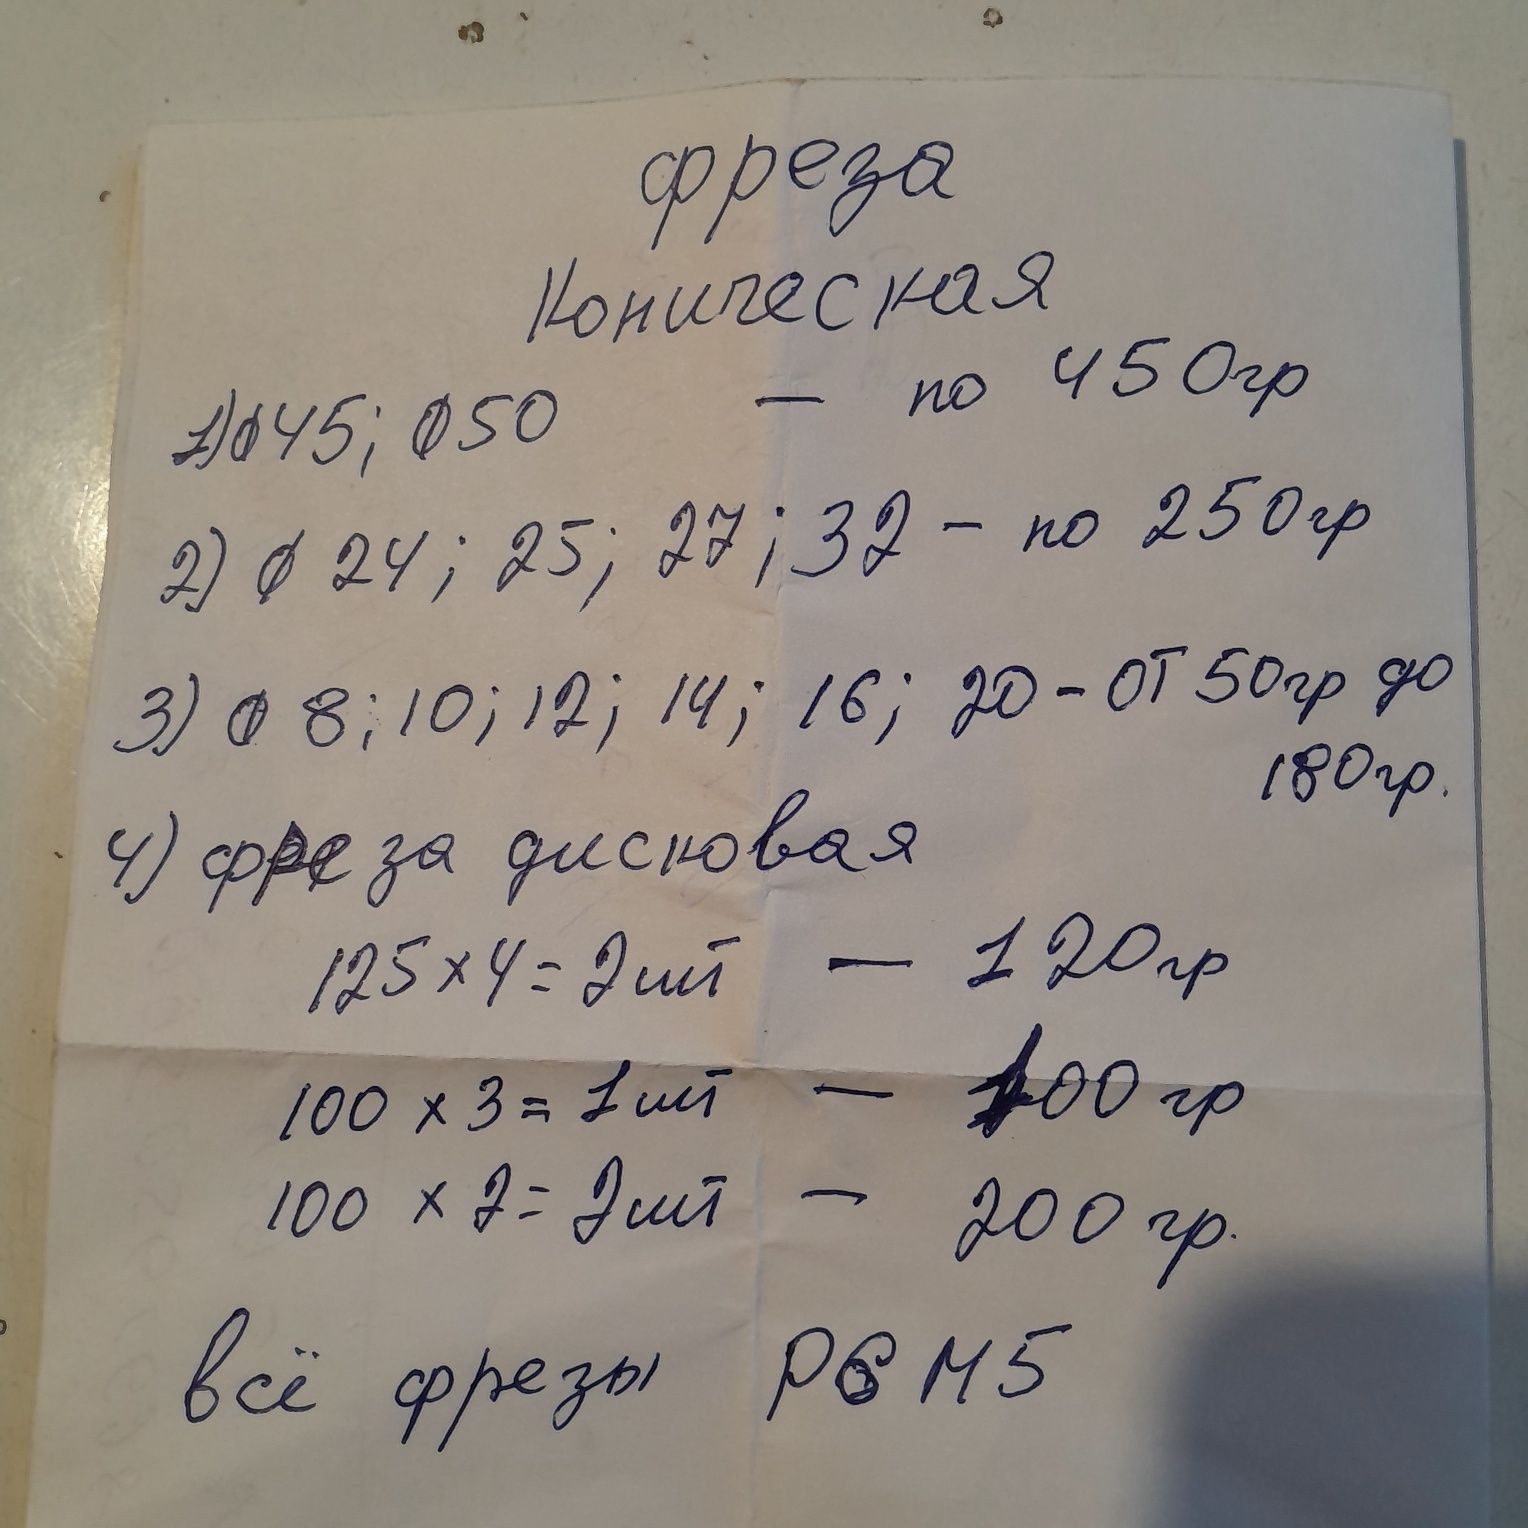 фреза
Коническая
1) ф45; ф50 — по 450гр
2) ф 24; 25; 27; 32 - по 250гр
3) ф 8; 10; 12; 14; 16; 20 - от 50гр до
180гр.
4) фреза дисковая
125 x 4 = 2шт — 120гр
100 x 3 = 1шт — 100 гр
100 x 2 = 2шт — 200 гр.
всё фрезы Р6М5